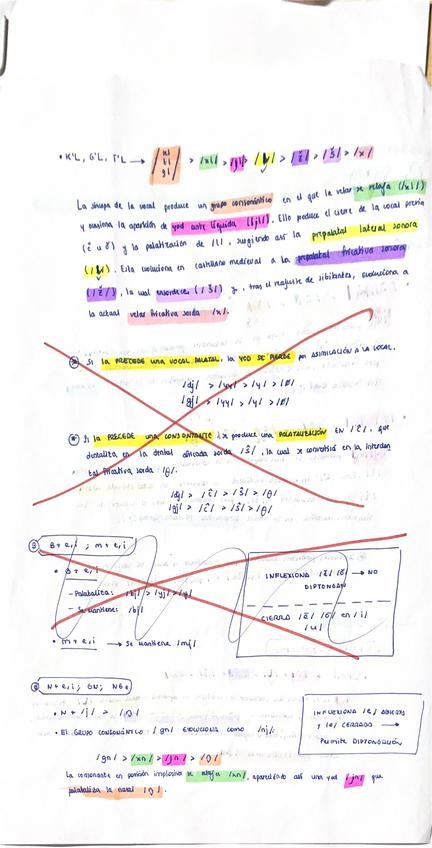 • K'L, G'L, T'L → /kl/ /tl/ /gl/ > /xl/ > /jl/ > /ļ/ > /ž/ > /š/ > /x/
La síncopa de la vocal produce un grupo consonántico en el que la velar se relaja (/xl/)
y ocasiona la aparición de yod ante líquida (/jl/). Ello produce el cierre de la vocal previa
y la palatización de /l/, surgiendo así la prepalatal lateral sonora
Esta evoluciona en castellano medieval a la prepalatal fricativa sonora
(/ž/), la cual ensordece (/š/) y, tras el reajuste de sibilantes, evoluciona a
la actual velar fricativa sorda /x/.
* Si la PRECEDE UNA VOCAL PALATAL, la YOD SE PIERDE por ASIMILACIÓN A LA VOCAL.
/dj/ > /yy/ > /y/ > /Ø/
/gj/ > /yy/ > /y/ > /Ø/
* Si la PRECEDE una CONSONANTE, se produce una PALATALIZACIÓN EN /ĉ/, que
dentaliza en la dental africada sorda /ŝ/, la cual se convirtió en la interden
tal fricativa sorda /θ/.
/dj/ > /ĉ/ > /ŝ/ > /θ/
/gj/ > /ĉ/ > /ŝ/ > /θ/
B + e, i ; m + e, i
• B + e, i
- Palataliza: /bj/ > /yj/ > /y/
- Se mantiene: /bj/
• m + e, i → Se mantiene /mj/
INFLEXIONA → NO
DIPTONGAN
CIERRA en /i/
/u/
N + e, i ; GN; NGe
• N + /j/ > /ņ/
• EL GRUPO CONSONÁNTICO /gn/ EVOLUCIONA COMO /nj/.
/gn/ > /xn/ > /jn/ > /ņ/
La consonante en posición implosiva se relaja /xn/, apareciendo así una yod /jn/ que
palataliza la nasal /ņ/.
INFLEXIONA /e/ ABIERTA
Y /o/ CERRADA →
PERMITE DIPTONGACIÓN